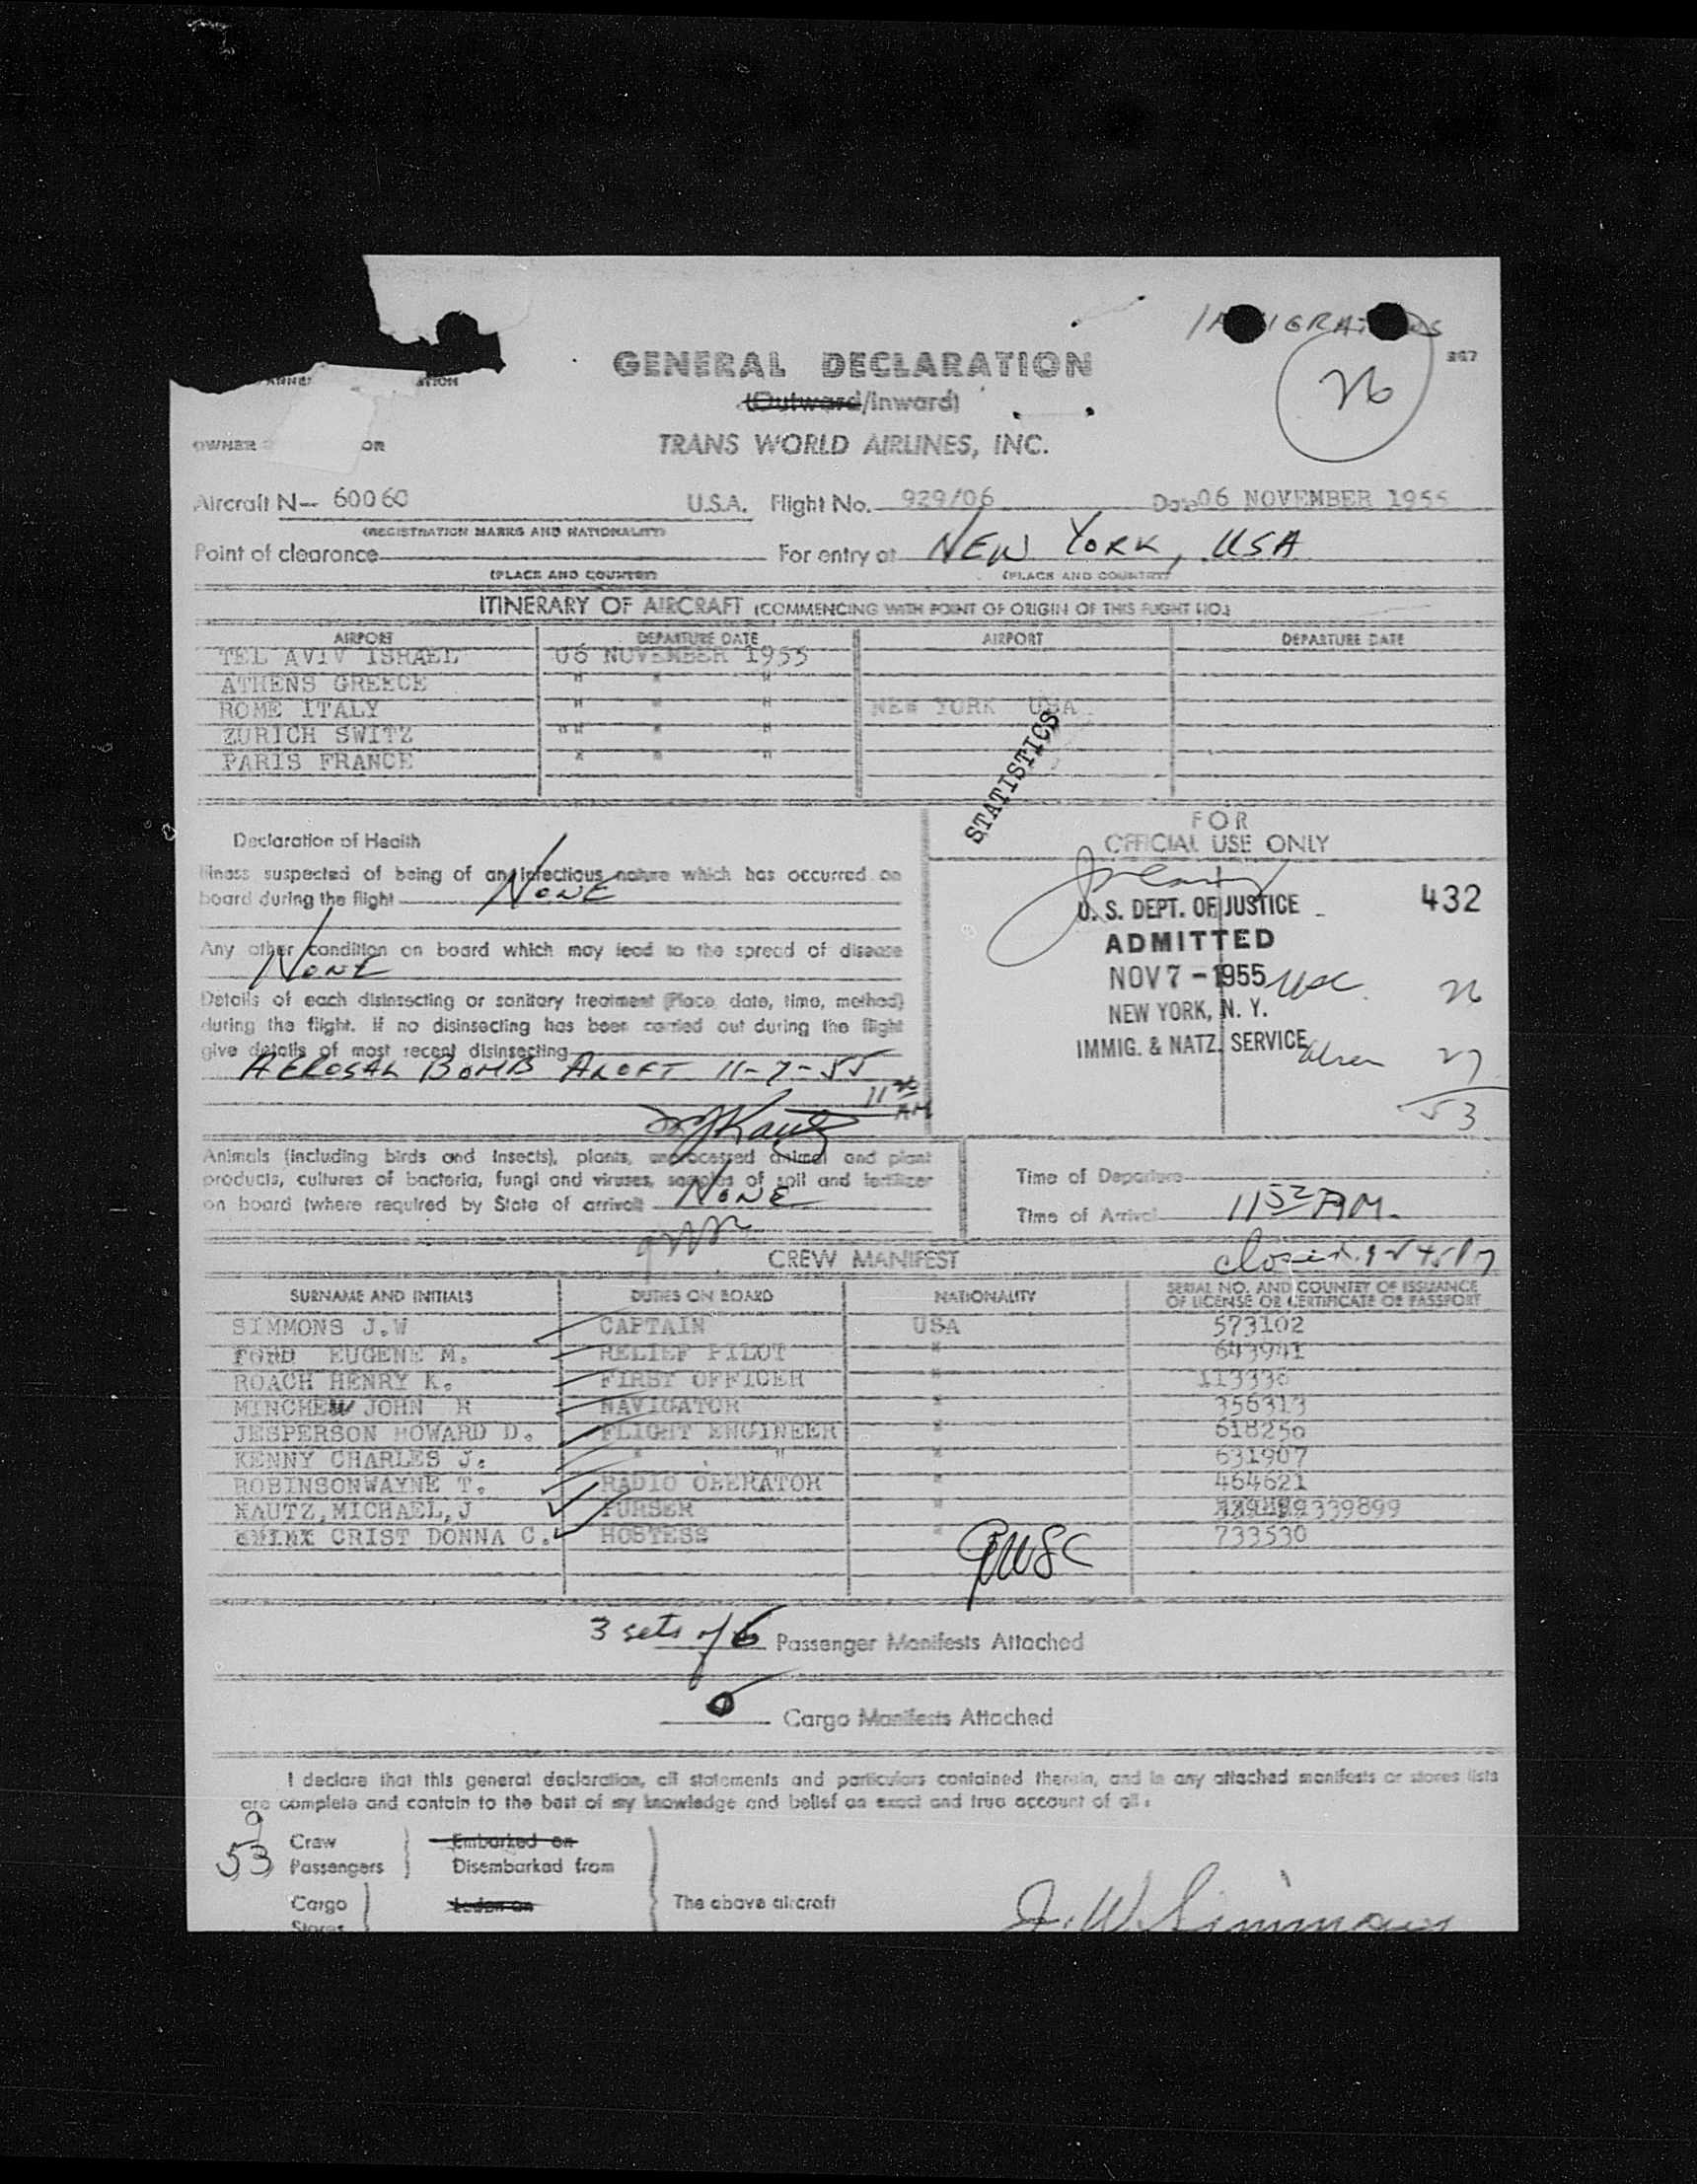 GENERAL DECLARATION
267
26
(Outward/Inward)
OWNER OR
TRANS WORLD AIRLINES, INC.
Aircraft N-- 60060 U.S.A. Flight No. 929/06 Date 06 NOVEMBER 1955
(REGISTRATION MARKS AND NATIONALITY)
Point of clearance For entry at NEW YORK, USA
(PLACE AND COUNTRY) (PLACE AND COUNTRY)
ITINERARY OF AIRCRAFT (COMMENCING WITH POINT OF ORIGIN OF THIS FLIGHT NO.)
AIRPORT DEPARTURE DATE AIRPORT DEPARTURE DATE
TEL AVIV ISRAEL 06 NOVEMBER 1955
ATHENS GREECE " " "
ROME ITALY " " " NEW YORK USA
ZURICH SWITZ "" " "
PARIS FRANCE " " "
STATISTICS
Declaration of Health
Illness suspected of being of an infectious nature which has occurred on
board during the flight NONE
Any other condition on board which may lead to the spread of disease
NONE
Details of each disinsecting or sanitary treatment (Place, date, time, method)
during the flight. If no disinsecting has been carried out during the flight
give details of most recent disinsecting
AEROSAL BOMB ALOFT 11-7-55
AM
FOR
OFFICIAL USE ONLY
U. S. DEPT. OF JUSTICE 432
ADMITTED
NOV 7 - 1955 usc 26
NEW YORK, N. Y.
IMMIG. & NATZ. SERVICE alien 27
53
Animals (including birds and insects), plants, unprocessed animal and plant
products, cultures of bacteria, fungi and viruses, samples of soil and fertilizer
on board (where required by State of arrival) NONE
Time of Departure
Time of Arrival 11 52 AM.
CREW MANIFEST
SURNAME AND INITIALS DUTIES ON BOARD NATIONALITY SERIAL NO. AND COUNTRY OF ISSUANCE
OF LICENSE OR CERTIFICATE OR PASSPORT
SIMMONS J.W CAPTAIN USA 573102
FORD EUGENE M. RELIEF PILOT " 643941
ROACH HENRY K. FIRST OFFICER " 113336
MINCHEW JOHN R NAVIGATOR " 356313
JESPERSON HOWARD D. FLIGHT ENGINEER " 618256
KENNY CHARLES J. " " " 631907
ROBINSONWAYNE T. RADIO OPERATOR " 464621
KAUTZ,MICHAEL,J PURSER " 339899
CRIST DONNA C. HOSTESS " 733530
3 sets of 6 Passenger Manifests Attached
0 Cargo Manifests Attached
I declare that this general declaration, all statements and particulars contained therein, and in any attached manifests or stores lists
are complete and contain to the best of my knowledge and belief an exact and true account of all:
9 Crew Embarked on
53 Passengers Disembarked from
Cargo Laden on The above aircraft J. W. Simmons
Stores